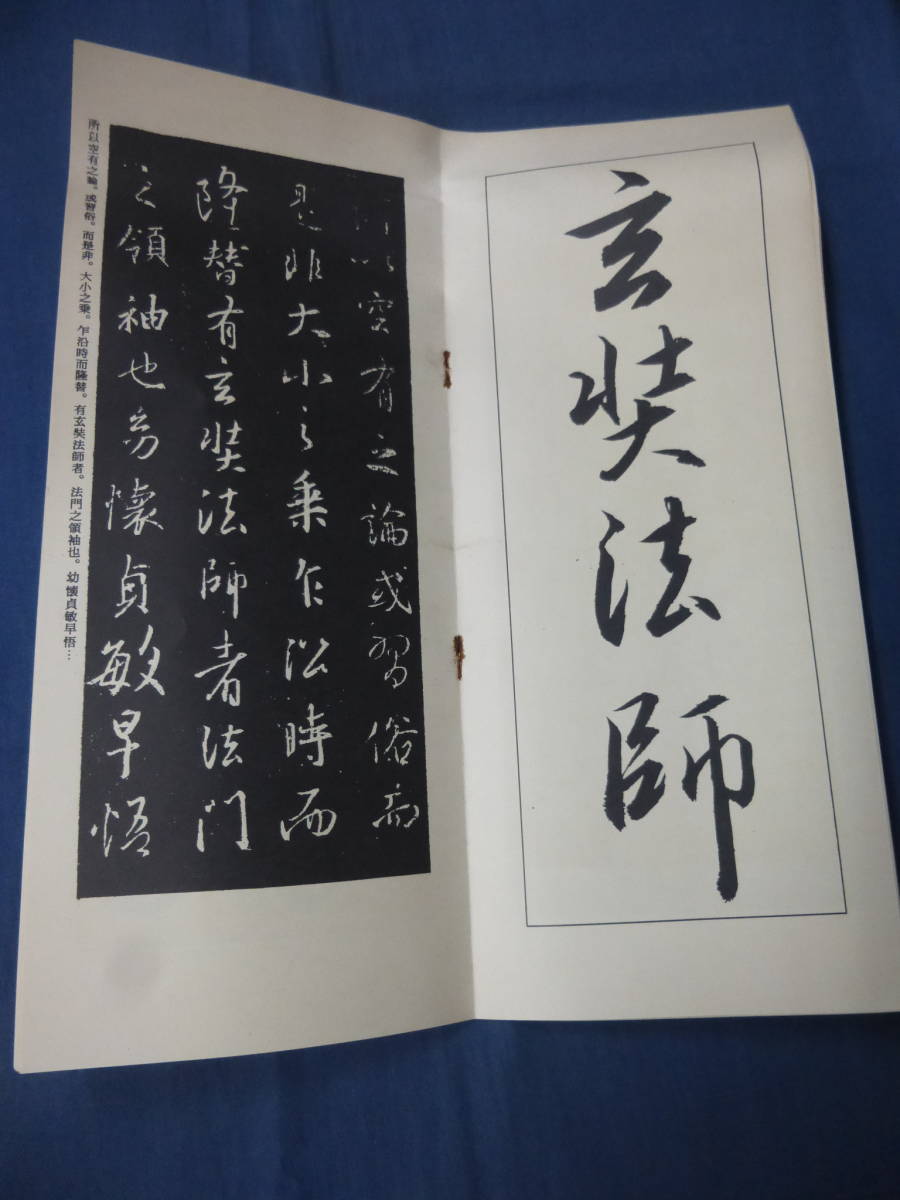 玄奘法師
所以空有之論或習俗而
是非大小之乗乍沿時而
隆替有玄奘法師者法門
之領袖也幼懷貞敏早悟
所以空有之論。或習俗。而是非。大小之乗。乍沿時而隆替。有玄奘法師者。法門之領袖也。幼懷貞敏早悟…